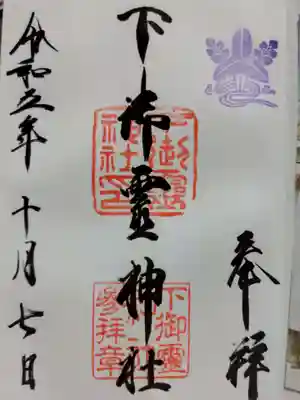 奉拝
下御霊神社
下御靈神社印
下御霊
参拝章
令和五年十月七日